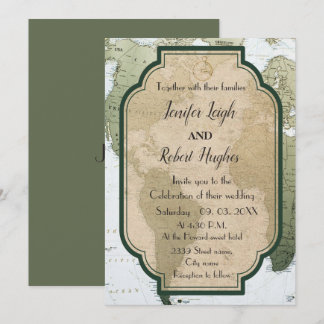 Together with their families
Jenifer Leigh
AND
Robert Hughes
Invite you to the
Celebration of their wedding
Saturday 09. 03. 20XX
At 4:30 P.M.
At the Howard sweet hotel
2339 Street name,
City name
Reception to follow